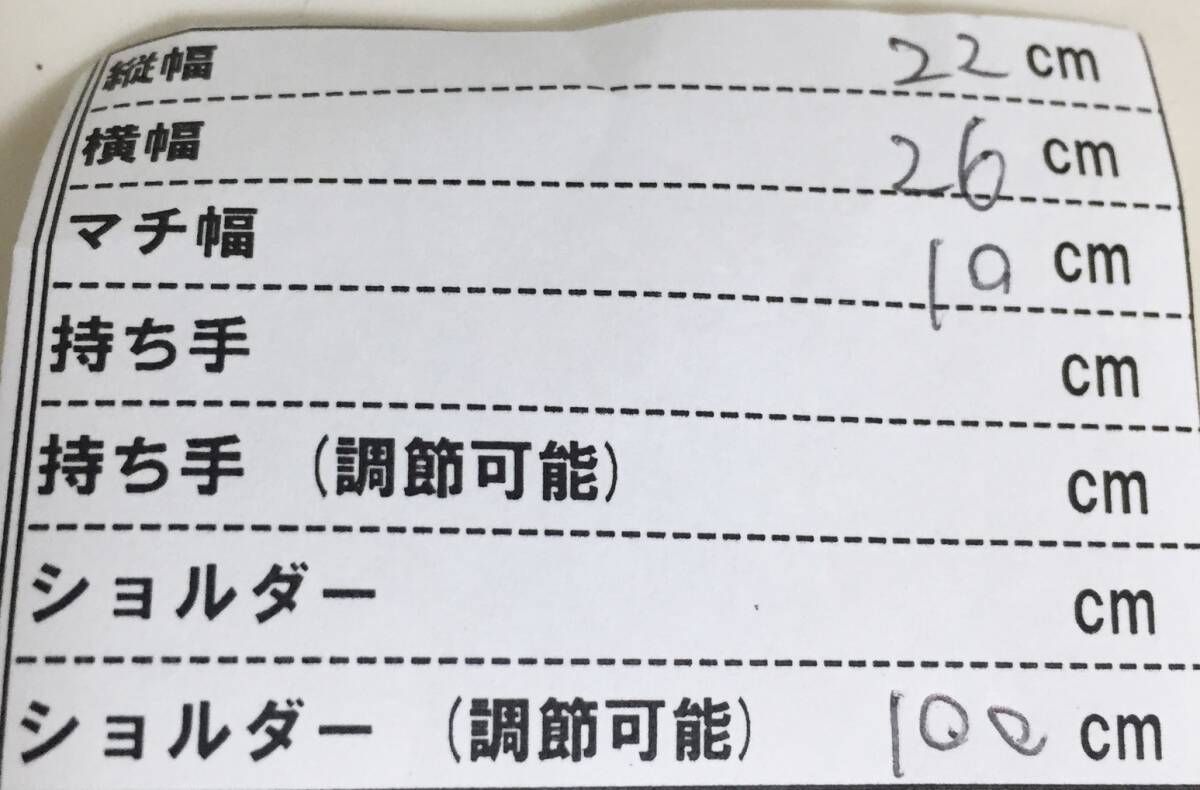 縦幅 22 cm
横幅 26 cm
マチ幅 10 cm
持ち手 cm
持ち手 (調節可能) cm
ショルダー cm
ショルダー (調節可能) 100 cm